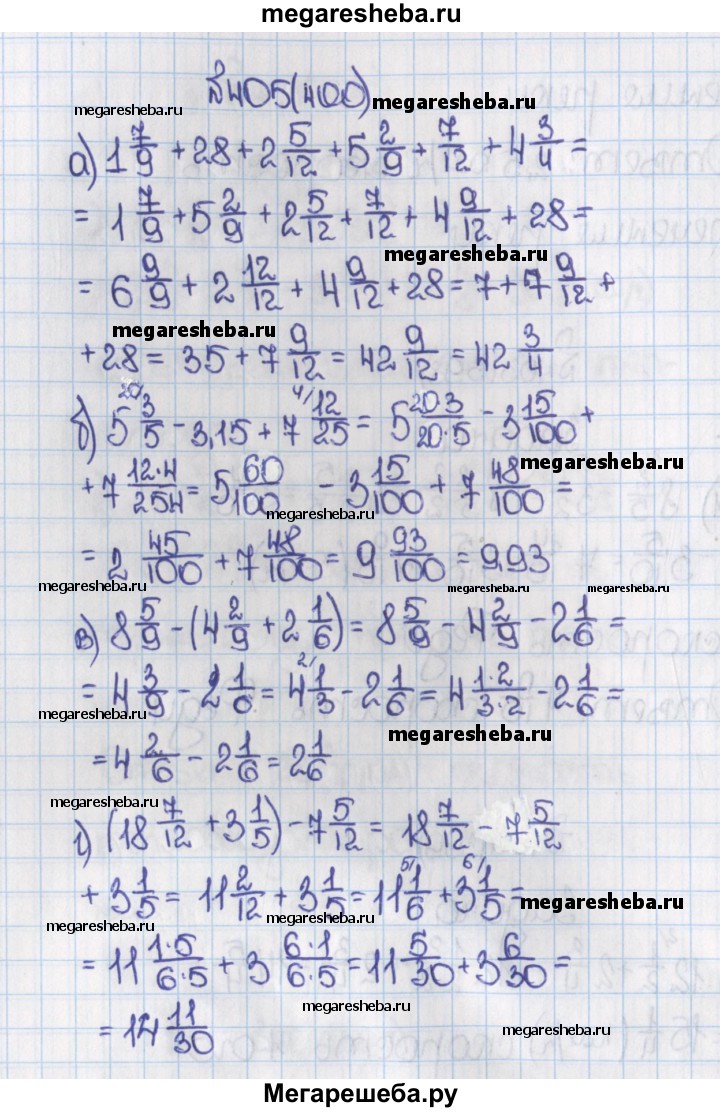 megaresheba.ru
№405(400)
megaresheba.ru
megaresheba.ru
а) 1 7/9 + 28 + 2 5/12 + 5 2/9 + 7/12 + 4 3/4 =
= 1 7/9 + 5 2/9 + 2 5/12 + 7/12 + 4 9/12 + 28 =
megaresheba.ru
= 6 9/9 + 2 12/12 + 4 9/12 + 28 = 7 + 7 9/12 +
megaresheba.ru
+ 28 = 35 + 7 9/12 = 42 9/12 = 42 3/4
б) 5 20/ 3/5 - 3,15 + 7 4/ 12/25 = 5 20·3/20·5 - 3 15/100 +
megaresheba.ru
+ 7 12·4/25 4 = 5 60/100 - 3 15/100 + 7 48/100 =
megaresheba.ru
= 2 45/100 + 7 48/100 = 9 93/100 = 9,93
megaresheba.ru
megaresheba.ru
megaresheba.ru
в) 8 5/9 - (4 2/9 + 2 1/6) = 8 5/9 - 4 2/9 - 2 1/6 =
= 4 3/9 - 2 1/6 = 4 2/ 1/3 - 2 1/6 = 4 1·2/3·2 - 2 1/6 =
megaresheba.ru
megaresheba.ru
= 4 2/6 - 2 1/6 = 2 1/6
megaresheba.ru
г) (18 7/12 + 3 1/5) - 7 5/12 = 18 7/12 - 7 5/12
+ 3 1/5 = 11 2/12 + 3 1/5 = 11 5/ 1/6 + 3 6/ 1/5 =
megaresheba.ru
megaresheba.ru
= 11 1·5/6·5 + 3 6·1/6·5 = 11 5/30 + 3 6/30 =
megaresheba.ru
megaresheba.ru
= 14 11/30
Мегарешеба.ру